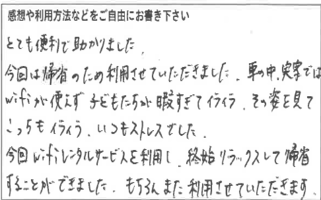 感想や利用方法などをご自由にお書き下さい
とても便利で助かりました。
今回は帰省のため利用させていただきました。車の中、実家では
wifiが使えず子どもたちが暇すぎてイライラ、その姿を見て
こっちもイライラ、いつもストレスでした。
今回wifiレンタルサービスを利用し、終始リラックスして帰省
することができました。もちろんまた利用させていただきます。